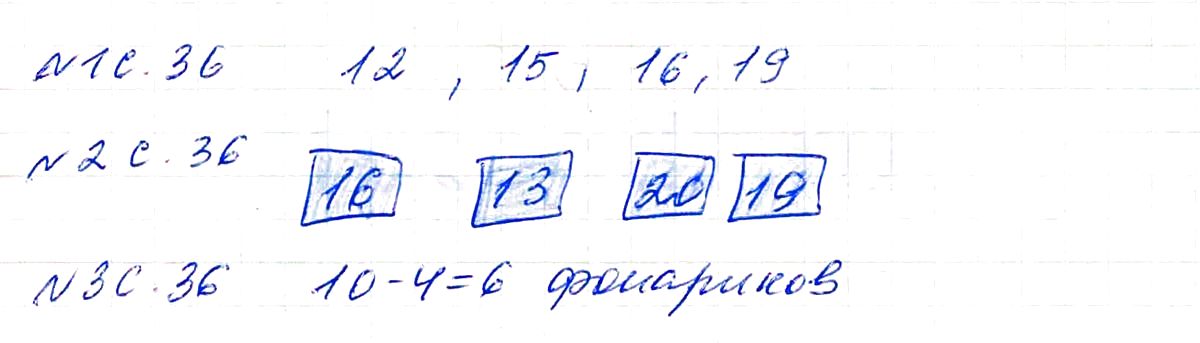 №1 с. 36 12, 15, 16, 19
№2 с. 36 16 13 20 19
№3 с. 36 10-4=6 фонариков